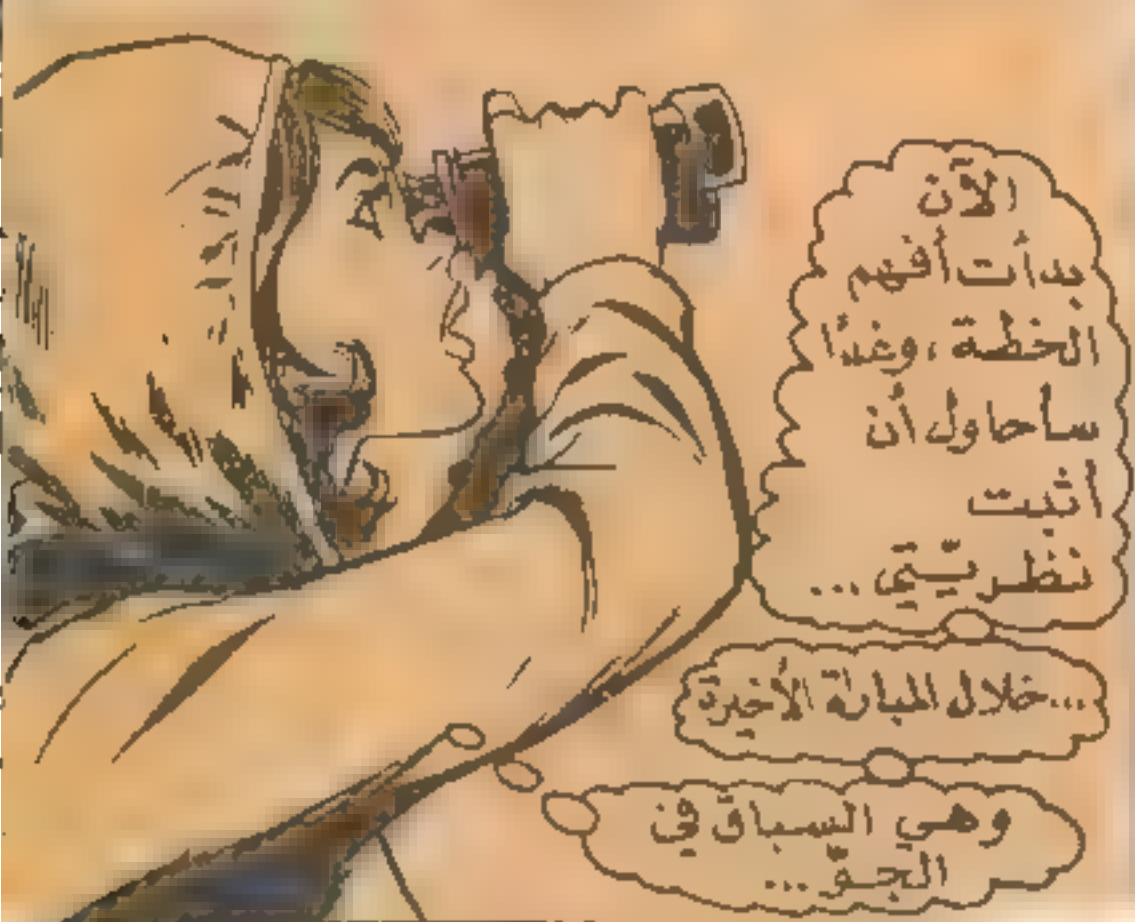 الآن
بدأت أفهم
الخطة ، وغداً
سأحاول أن
اثبت
نظريّتي ...
...خلال المباراة الأخيرة
وهي السباق في
الجوّ ...